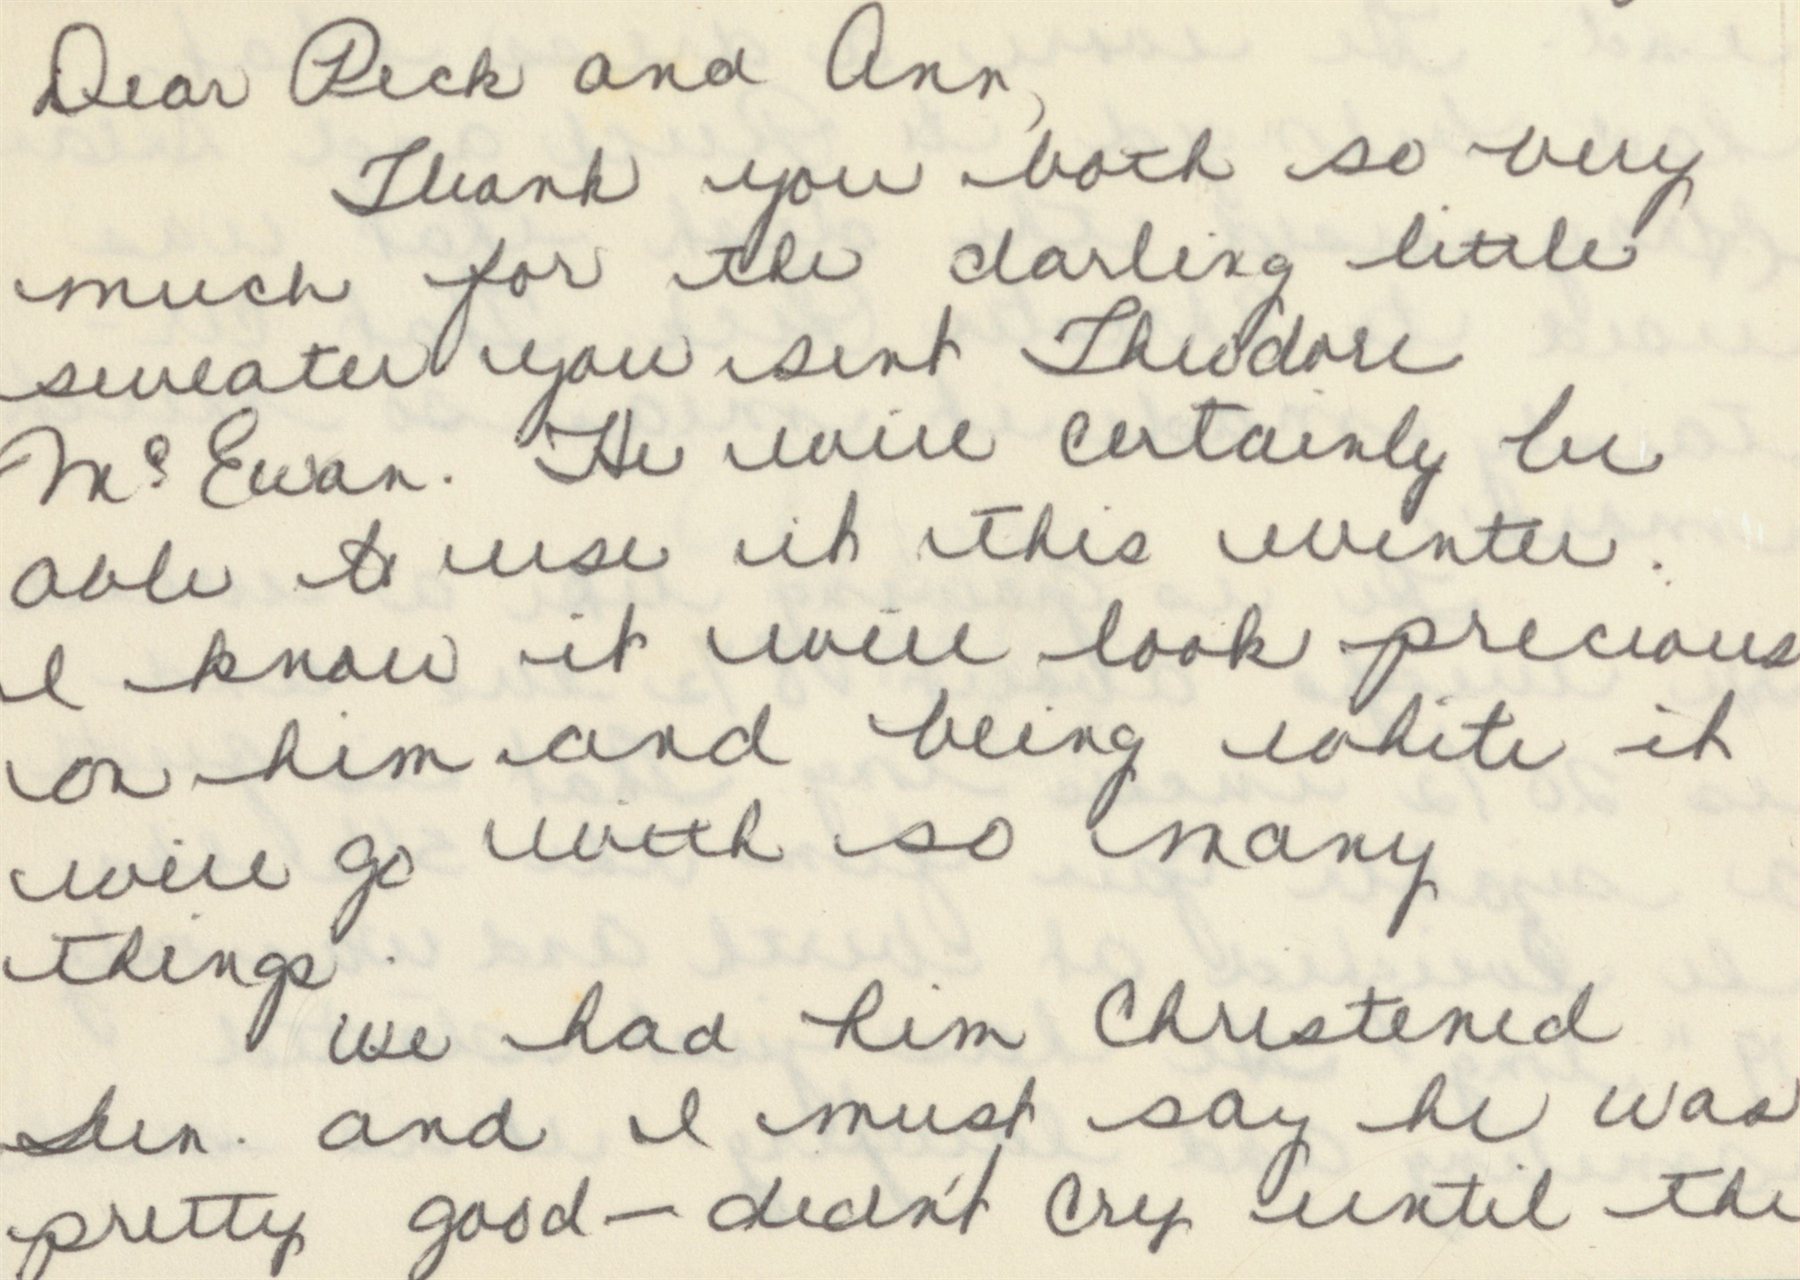 Dear Peck and Ann,
Thank you both so very
much for the darling little
sweater you sent Theodore
McEwan. He will certainly be
able to use it this winter.
I know it will look precious
on him and being white it
will go with so many
things.
We had him Christened
Sun. and I must say he was
pretty good — didn't cry until the